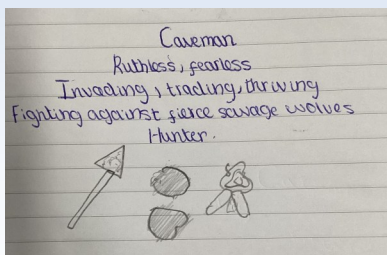 Caveman
Ruthless, fearless
Invading, trading, thriving
Fighting against fierce savage wolves
Hunter.